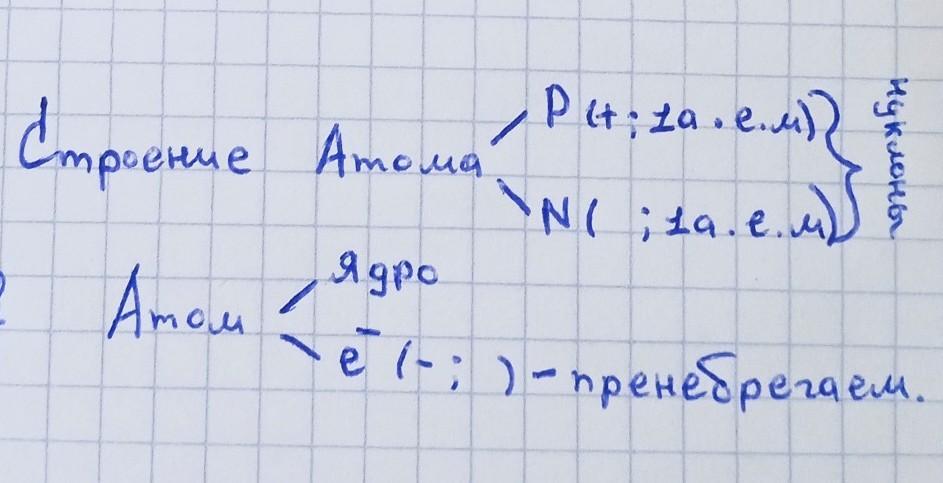 P (+; 1а.е.м)
Строение Атома
N ( ; 1а.е.м)
нуклоны
Ядро
Атом
e⁻ (-; ) - пренебрегаем.